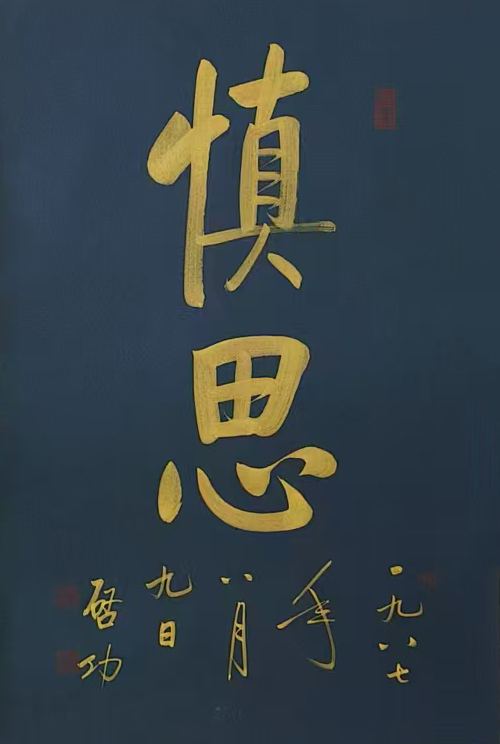 慎思
一九八七
年
八月
九日
启功